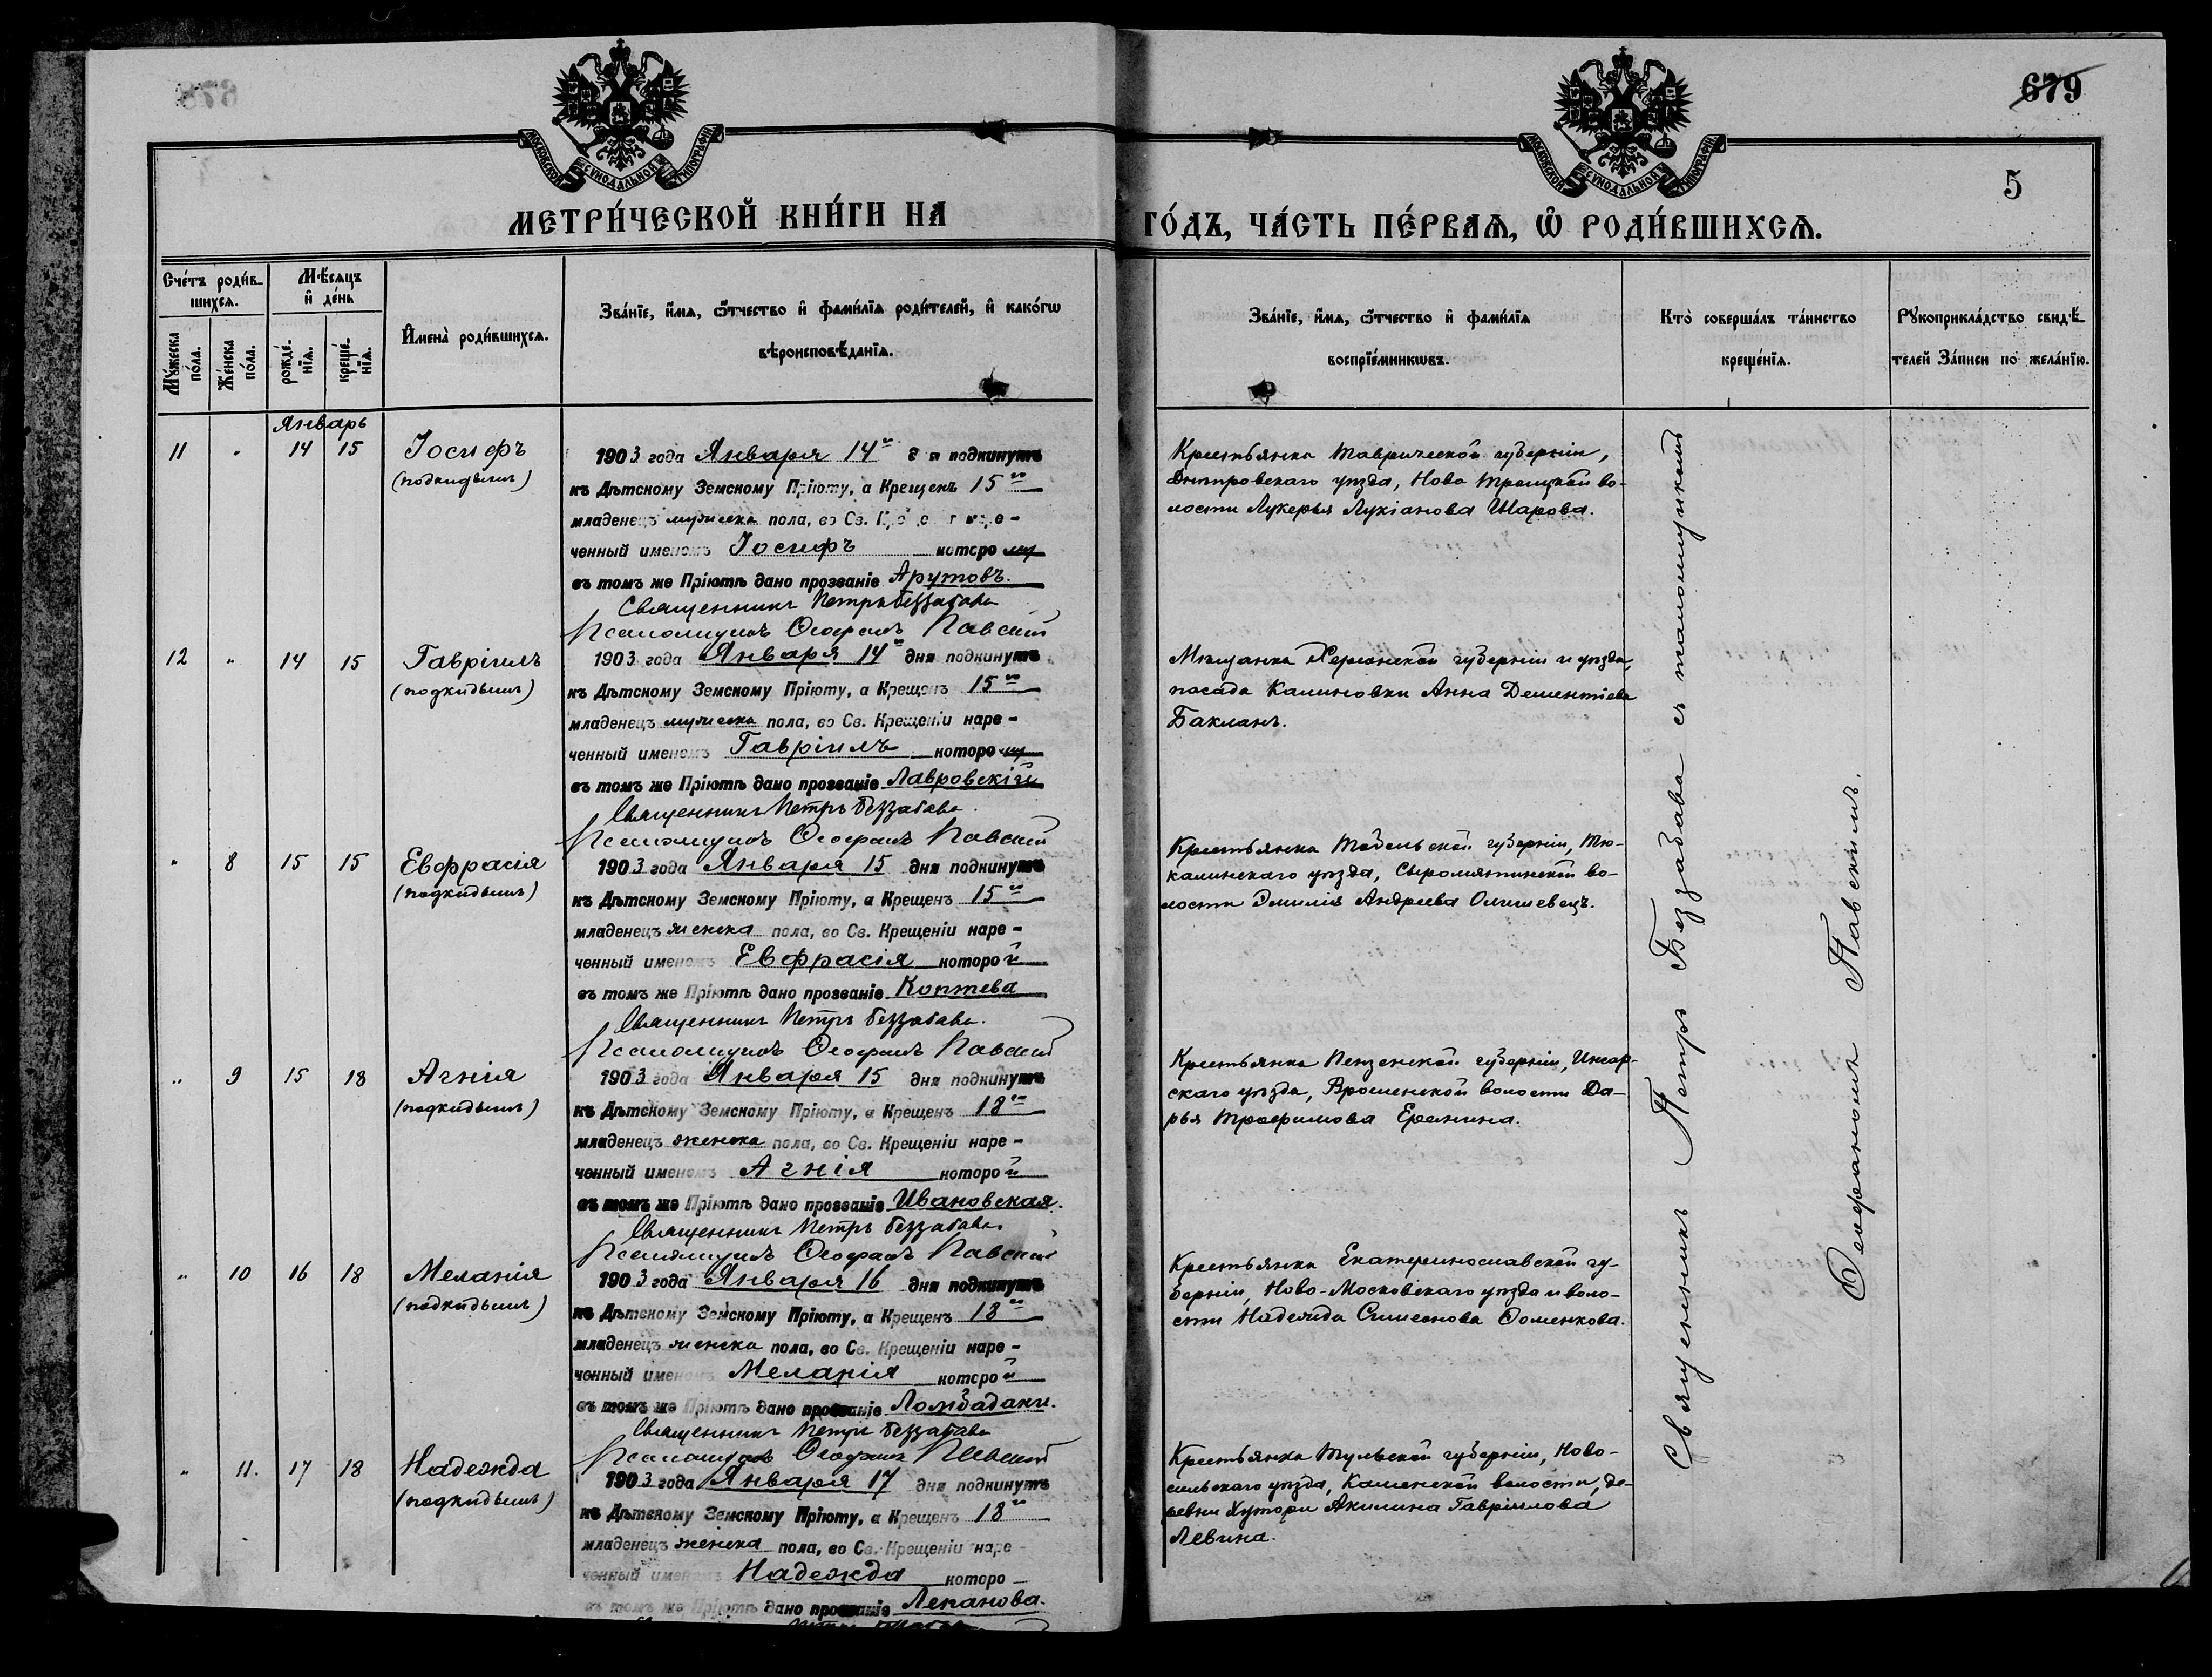 679
5
МОСКОВСКОЙ СѴНОДАЛЬНОЙ ТИПОГРАФІИ
МОСКОВСКОЙ СѴНОДАЛЬНОЙ ТИПОГРАФІИ
МЕТРИ́ЧЕСКОЙ КНИ́ГИ НА ГО́ДЪ, ЧА́СТЬ ПЕ́РВАѦ, Ѽ РОДИ́ВШИХСѦ.
Сче́тъ роди́в-
шихсѧ.
Мѣ́сѧцъ
и҆ де́нь
Мꙋ́жеска по́ла.
Же́нска по́ла.
рожде́-
нїѧ.
креще́-
нїѧ.
И҆мена̀ роди́вшихсѧ.
Зва́нїе, и҆́мѧ, ѻ҆́тчество и҆ фами́лїѧ роди́телей, и҆ како́гѡ
вѣроисповѣ́данїѧ.
Зва́нїе, и҆́мѧ, ѻ҆́тчество и҆ фами́лїѧ
воспрїе́мникѡвъ.
Кто̀ соверша́лъ та́инство
креще́нїѧ.
Рꙋкоприкла́дство свидѣ́-
телей За́писи по жела́нїю.
Январь
11 " 14 15 Іосифъ
(подкидышъ)
1903 года Января 14го дня подкинутъ
къ Дѣтскому Земскому Пріюту, а Крещенъ 15го
младенецъ мужеска пола, во Св.
ченный именемъ Іосифъ которому
въ томъ же Пріютѣ дано прозваніе Арутовъ.
Священникъ Петръ Беззабава
Псаломщикъ Ѳеофанъ Павскій
Крестьянка Таврической губерніи,
Днѣпровскаго уѣзда, Ново Троицкой во-
лости Лукерья Лукіанова Шарова.
12 " 14 15 Гавріилъ
(подкидышъ)
1903 года Января 14го дня подкинутъ
къ Дѣтскому Земскому Пріюту, а Крещенъ 15го
младенецъ мужеска пола, во Св. Крещеніи наре-
ченный именемъ Гавріилъ которому
въ томъ же Пріютѣ дано прозваніе Лавровскій
Священникъ Петръ Беззабава.
Псаломщикъ Ѳеофанъ Павскій
Мѣщанка Херсонской губерніи и уѣзда,
посада Калиновки Анна Дементіева
Бакланъ.
" 8 15 15 Евфрасія
(подкидышъ)
1903 года Января 15 дня подкинутъ
къ Дѣтскому Земскому Пріюту, а Крещенъ 15го
младенецъ женска пола, во Св. Крещеніи наре-
ченный именемъ Евфрасія которой
въ томъ же Пріютѣ дано прозваніе Коптева
Священникъ Петръ Беззабава.
Псаломщикъ Ѳеофанъ Павскій
Крестьянка Тобольской губерніи, Тю-
калинскаго уѣзда, во-
лости Эмилія Андреева
" 9 15 18 Агнія
(подкидышъ)
1903 года Января 15 дня подкинутъ
къ Дѣтскому Земскому Пріюту, а Крещенъ 18го
младенецъ женска пола, во Св. Крещеніи наре-
ченный именемъ Агнія которой
въ томъ же Пріютѣ дано прозваніе Ивановская.
Священникъ Петръ Беззабава.
Псаломщикъ Ѳеофанъ Павскій
Крестьянка Пензенской губерніи, Инсар-
скаго уѣзда, волости Да-
рья Трофимова
" 10 16 18 Меланія
(подкидышъ)
1903 года Января 16 дня подкинутъ
къ Дѣтскому Земскому Пріюту, а Крещенъ 18го
младенецъ женска пола, во Св. Крещеніи наре-
ченный именемъ Меланія которой
въ томъ же Пріютѣ дано прозваніе Ломбадаки.
Священникъ Петръ Беззабава
Псаломщикъ Ѳеофанъ Павскій
Крестьянка Екатеринославской гу-
берніи, Ново-Московскаго уѣзда и воло-
сти Надежда Симеонова Доменкова.
" 11. 17 18 Надежда
(подкидышъ)
1903 года Января 17 дня подкинутъ
къ Дѣтскому Земскому Пріюту, а Крещенъ 18го
младенецъ женска пола, во Св. Крещеніи наре-
ченный именемъ Надежда которо
въ томъ же Пріютѣ дано прозваніе Лепанова.
Крестьянка Тульской губерніи, Ново-
сильскаго уѣзда, Каменской волости, де-
ревни Хутори Акилина Гавріилова
Левина.
Священникъ Петръ Беззабава съ псаломщикомъ
Ѳеофаномъ Павскимъ.